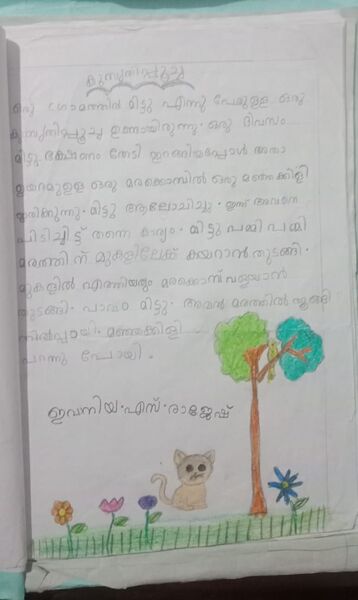 കുസൃതിപ്പൂച്ച
ഒരു ഗ്രാമത്തിൽ മിട്ടു എന്നു പേരുള്ള ഒരു
കുസൃതിപ്പൂച്ച ഉണ്ടായിരുന്നു. ഒരു ദിവസം
മിട്ടു ഭക്ഷണം തേടി ഇറങ്ങിയപ്പോൾ അതാ
ഉയരമുള്ള ഒരു മരക്കൊമ്പിൽ ഒരു മഞ്ഞക്കിളി
ഇരിക്കുന്നു. മിട്ടു ആലോചിച്ചു. ഇന്ന് അവനെ
പിടിച്ചിട്ട് തന്നെ കാര്യം. മിട്ടു പമ്മി പമ്മി
മരത്തിന് മുകളിലേക്ക് കയറാൻ തുടങ്ങി.
മുകളിൽ എത്തിയതും മരക്കൊമ്പ് വളയാൻ
തുടങ്ങി. പാവം മിട്ടു. അവൻ മരത്തിൽ തൂങ്ങി
നിൽപ്പായി. മഞ്ഞക്കിളി
പറന്നു പോയി.
ഇവനിയ.എസ്.രാജേഷ്